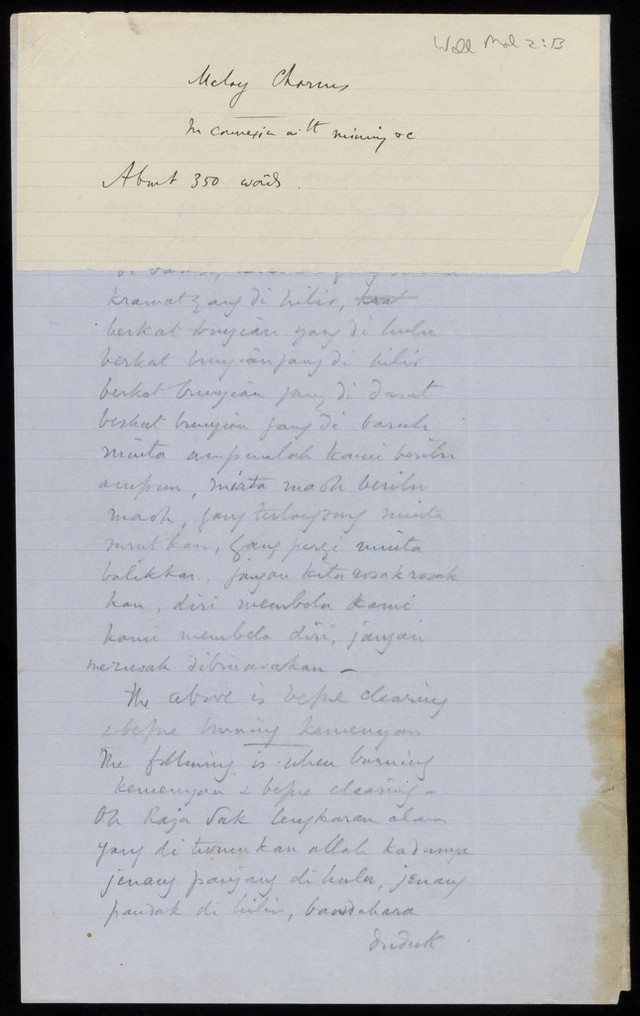 Well Mal 2:B
Malay Charms
In connexion with mining &c
About 350 words.
kramat yang di hilir,
berkat yang di hulu
berkat yang di hilir
berkat yang di darat
berkat yang di baruh
minta ampunlah kami beribu
ampun, minta maoh beribu
maoh, yang terlangsong minta
surutkan, yang pergi minta
balikkan, jangan kita rosak rosak
kan, diri membela kami
kami membela diri, jangan
merusak dibinasakan –
The above is before clearing
& before burning kemenyan
The following is when burning
kemenyan & before clearing –
Oh Raja Sak alam
yang di turunkan allah kadunya
jenang panjang di hulu, jenang
pandak di hilir, bandahara
duduk